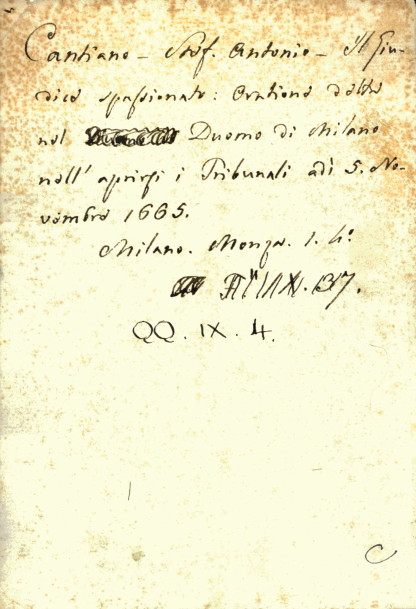 Cantiano - Stef. Antonio - Il Giu-
dice spassionato: Oratione detta
nel Duomo di Milano
nell' aprirsi i Tribunali adì 5. No-
vembre 1665.
Milano. Monza. 1. 4.º
137.
QQ. IX. 4.
C